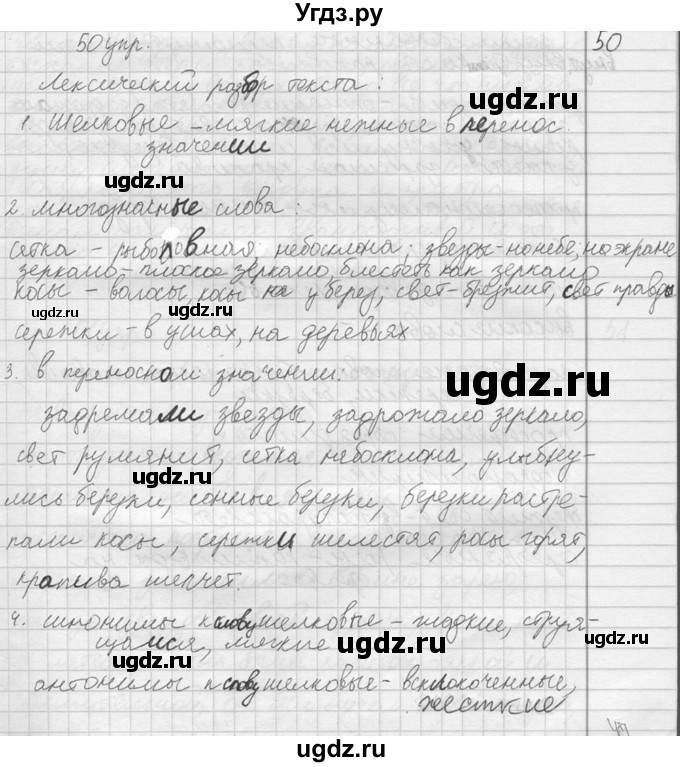 Угдз.ру
50 упр.
50
Лексический разбор текста:
1. Шелковые – мягкие нежные в перенос.
значении
2. многозначные слова:
сетка – рыболовная, небосклона; звезды – на небе, на экране
зеркало – плоское зеркало, блестеть как зеркало
косы – волосы, косы на у берез; свет – брезжит, свет правды
сережки – в ушах, на деревьях
3. в переносном значении:
задремали звезды, задрожало зеркало,
свет румяный, сетка небосклона, улыбну-
лись березки, сонные березки, березки растре-
пали косы, сережки шелестят, росы горят,
крапива шепчет.
4. синонимы к слову шелковые – гладкие, струя-
щаися, мягкие
антонимы к слову шелковые – всклокоченные,
жесткие
ugdz.ru
ugdz.ru
ugdz.ru
ugdz.ru
ugdz.ru
ugdz.ru
ugdz.ru
ugdz.ru
ugdz.ru
ugdz.ru
ugdz.ru
ugdz.ru